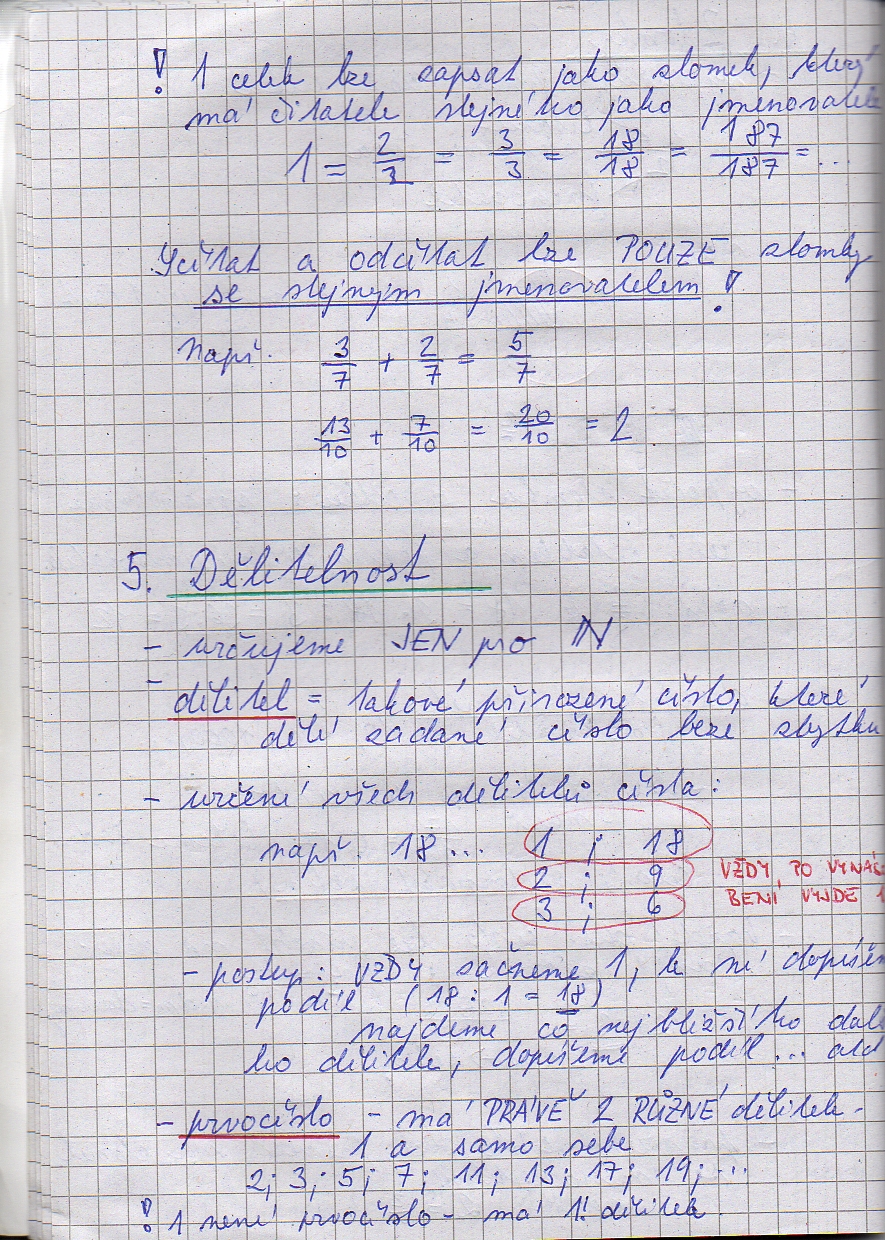 ! 1 celek lze zapsat jako zlomek, který
má čitatele stejného jako jmenovatele
1 = 2/2 = 3/3 = 18/18 = 187/187 = ...
Sčítat a odčítat lze POUZE zlomky
se stejným jmenovatelem !
Např. 3/7 + 2/7 = 5/7
13/10 + 7/10 = 20/10 = 2
5. Dělitelnost
- určujeme JEN pro ℕ
- dělitel = takové přirozené číslo, které
dělí zadané číslo beze zbytku
- určení všech dělitelů čísla:
např. 18 ... 1 ; 18
2 ; 9 VŽDY PO VYNÁS-
3 ; 6 BENÍ VYJDE 1
- postup: VŽDY začneme 1, k ní dopíšem
podíl (18 : 1 = 18)
najdeme co nejbližšího dal
ho dělitele, dopíšeme podíl ... atd
- prvočíslo - má PRÁVĚ 2 RŮZNÉ dělitele -
1 a samo sebe
2; 3; 5; 7; 11; 13; 17; 19; ...
! 1 není prvočíslo - má 1! dělitele.